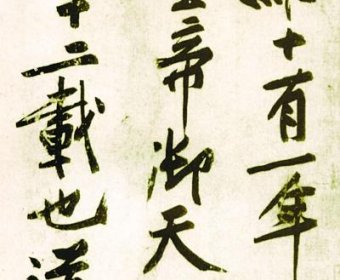 十有一年
帝御天
十二載也